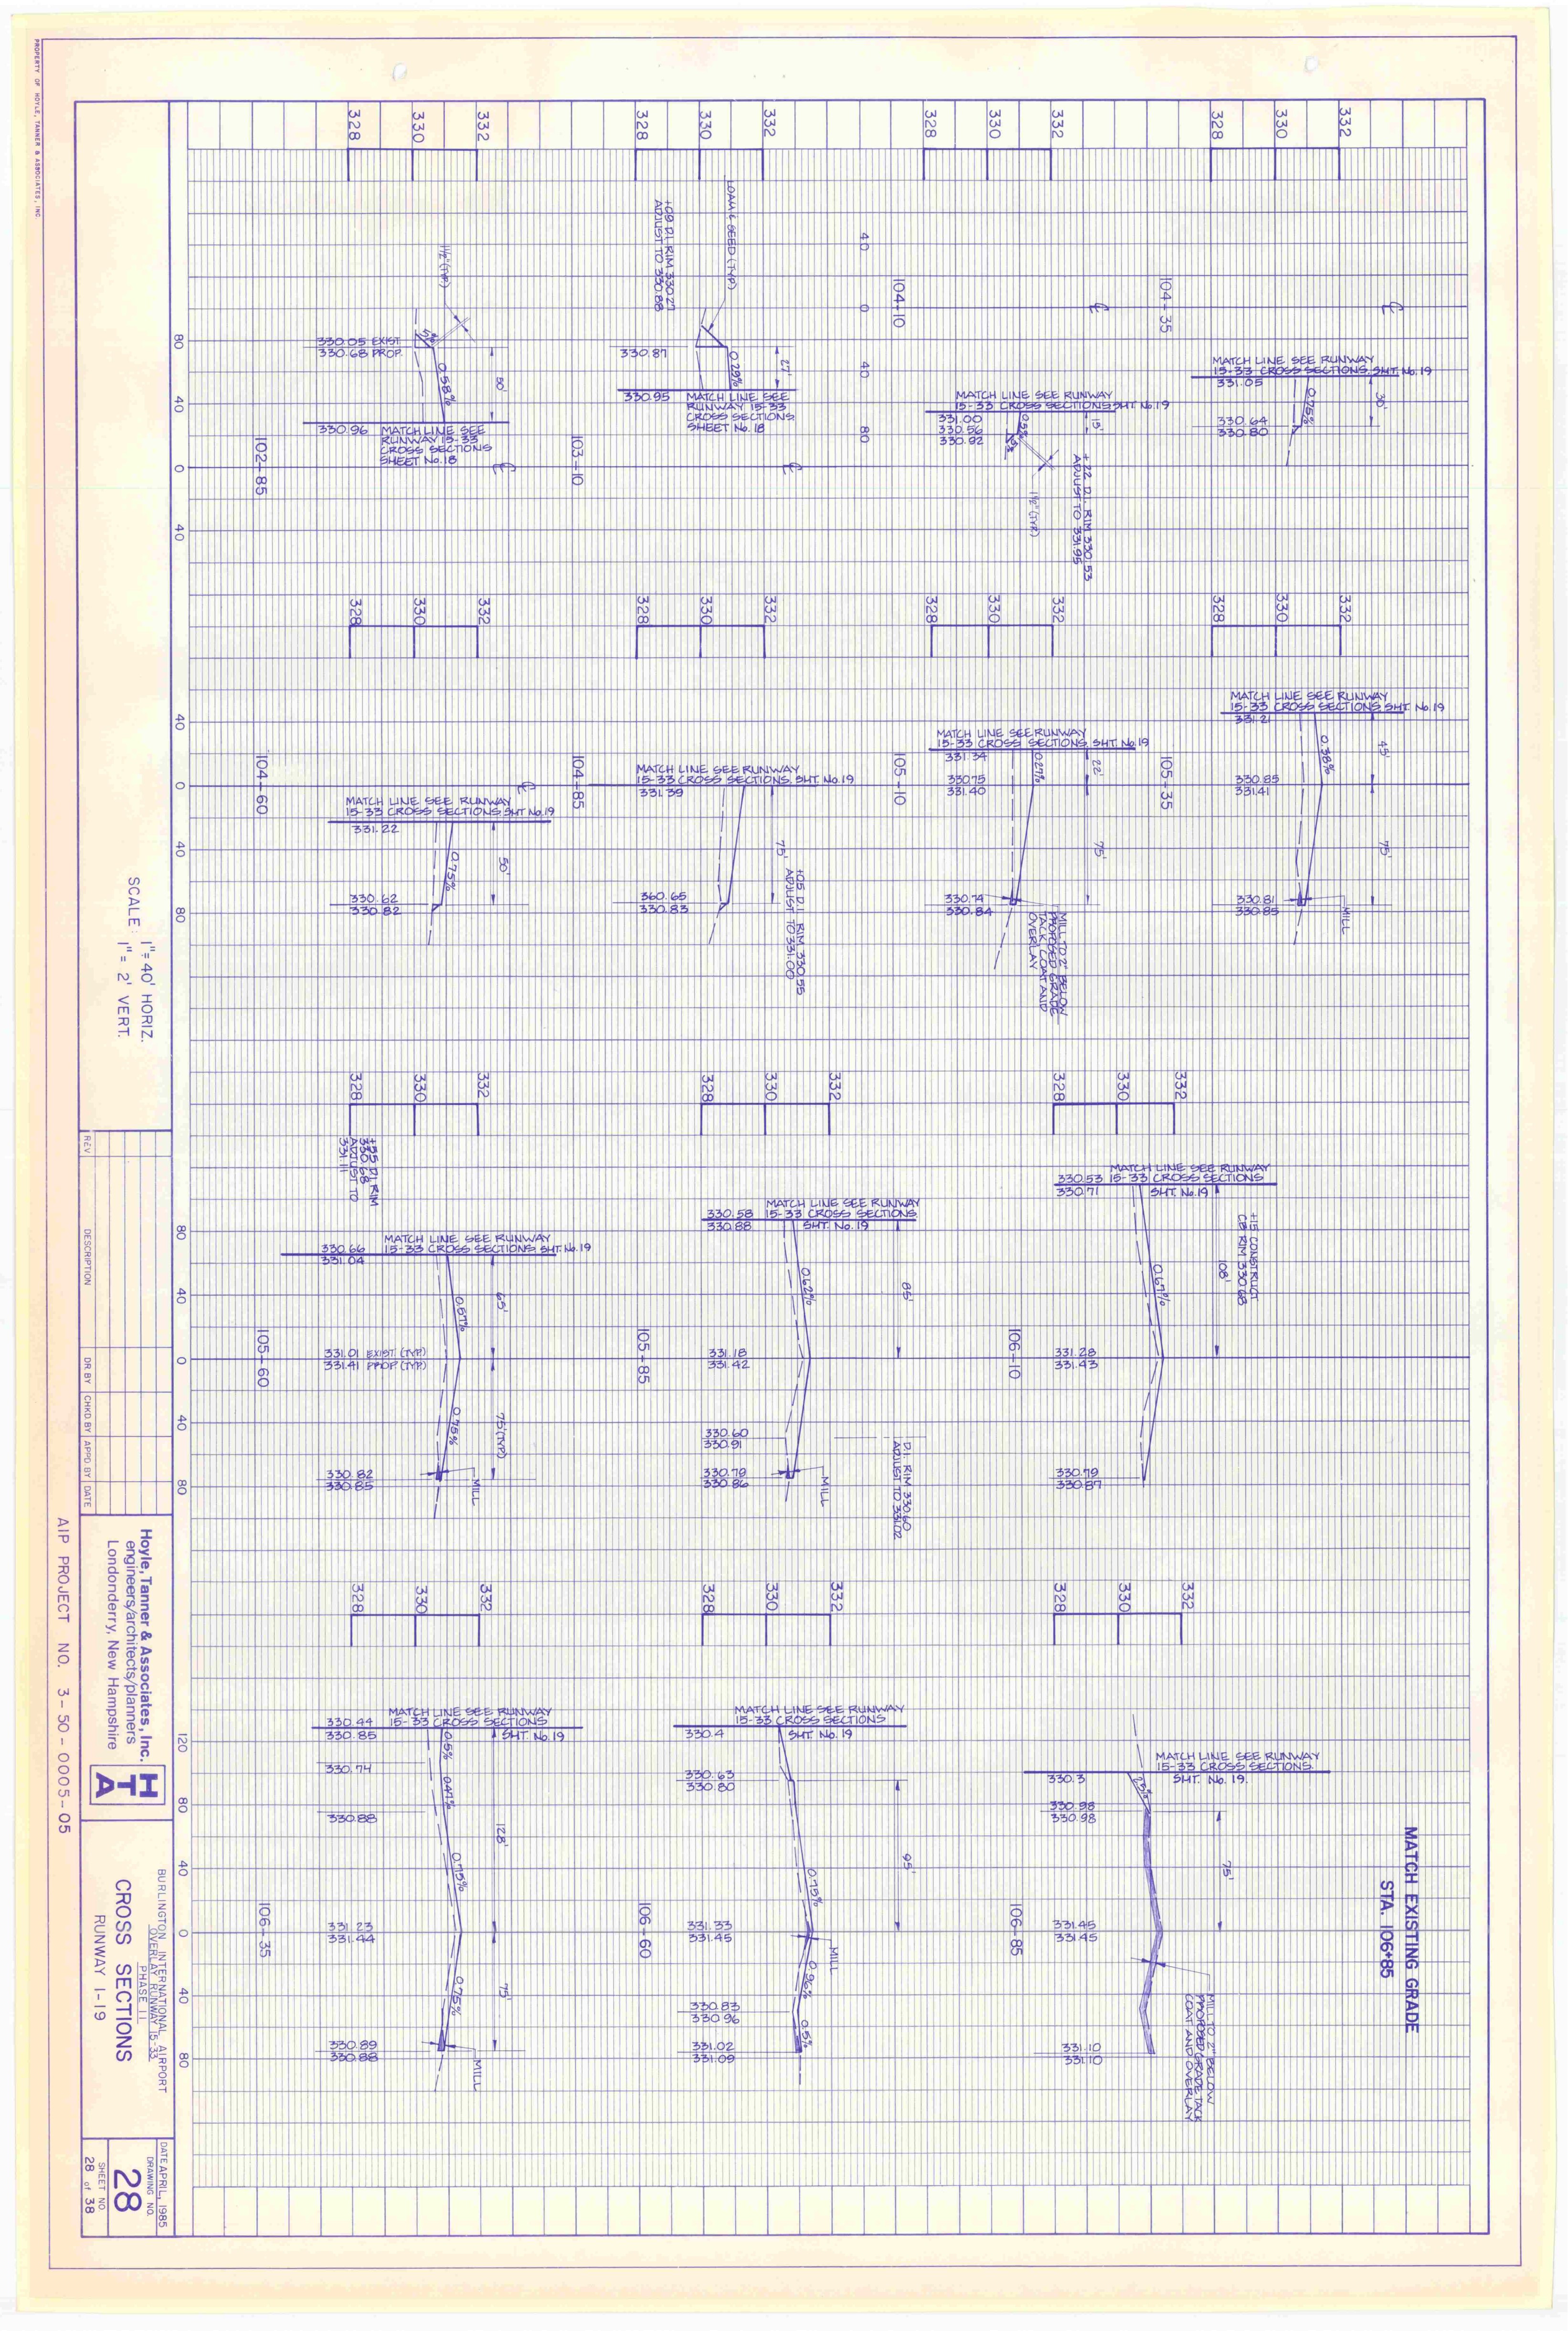 PROPERTY OF HOYLE, TANNER & ASSOCIATES, INC.
328
330
332
328
330
332
328
330
332
328
330
332
1½" (TYP.)
5%
330.05 EXIST.
330.68 PROP.
0.58%
50'
330.96
MATCH LINE SEE
RUNWAY 15-33
CROSS SECTIONS
SHEET No. 18
℄
102-85
80
40
0
40
+09 D.I. RIM 330.27
ADJUST TO 330.88
LOAM & SEED (TYP.)
330.87
0.29%
27'
330.95
MATCH LINE SEE
RUNWAY 15-33
CROSS SECTIONS
SHEET No. 18
℄
103-10
40
0
40
80
104-10
℄
MATCH LINE SEE RUNWAY
15-33 CROSS SECTIONS SHT No. 19
331.00
330.56
330.92
0.5%
15'
1½" (TYP.)
+22 D.I. RIM 330.53
ADJUST TO 331.95
104-35
℄
MATCH LINE SEE RUNWAY
15-33 CROSS SECTIONS, SHT. No. 19
331.05
0.75%
30'
330.64
330.80
328
330
332
328
330
332
328
330
332
328
330
332
40
0
40
80
104-60
℄
MATCH LINE SEE RUNWAY
15-33 CROSS SECTIONS SHT No. 19
331.22
0.75%
50'
330.62
330.82
104-85
MATCH LINE SEE RUNWAY
15-33 CROSS SECTIONS. SHT. No. 19
331.39
75'
360.65
330.83
+05 D.I. RIM 330.55
ADJUST TO 331.00
105-10
MATCH LINE SEE RUNWAY
15-33 CROSS SECTIONS, SHT. No. 19
331.34
0.27%
22'
330.75
331.40
75'
330.74
330.84
MILL TO 2" BELOW
PROPOSED GRADE
TACK COAT AND
OVERLAY
105-35
MATCH LINE SEE RUNWAY
15-33 CROSS SECTIONS SHT. No. 19
331.21
0.38%
45'
330.85
331.41
75'
330.81
330.85
MILL
328
330
332
328
330
332
328
330
332
+55 D.I. RIM
330.68
ADJUST TO
331.11
80
40
0
40
80
105-60
MATCH LINE SEE RUNWAY
330.66 15-33 CROSS SECTIONS SHT. No. 19
331.04
0.57%
65'
331.01 EXIST. (TYP.)
331.41 PROP. (TYP.)
0.75%
75' (TYP.)
330.82
330.85
MILL
105-85
MATCH LINE SEE RUNWAY
330.58 15-33 CROSS SECTIONS
330.88 SHT. No. 19
0.62%
85'
331.18
331.42
330.60
330.91
330.79
330.86
MILL
D.I. RIM 330.60
ADJUST TO 331.02
106-10
MATCH LINE SEE RUNWAY
330.53 15-33 CROSS SECTIONS
330.71 SHT. No. 19
0.67%
108'
+15 CONSTRUCT
CB RIM 330.63
331.28
331.43
330.79
330.87
328
330
332
328
330
332
328
330
332
120
80
40
0
40
80
106-35
MATCH LINE SEE RUNWAY
330.44 15-33 CROSS SECTIONS
330.85 SHT. No. 19
330.74
330.88
0.5%
0.47%
128'
0.75%
331.23
331.44
0.75%
75'
330.89
330.88
MILL
106-60
MATCH LINE SEE RUNWAY
15-33 CROSS SECTIONS
330.4 SHT. No. 19
330.63
330.80
95'
0.75%
331.33
331.45
MILL
0.96%
330.83
330.96
0.5%
331.02
331.09
106-85
MATCH LINE SEE RUNWAY
15-33 CROSS SECTIONS.
330.3 SHT. No. 19.
330.98
330.98
75'
331.45
331.45
331.10
331.10
MILL TO 2" BELOW
PROPOSED GRADE TACK
COAT AND OVERLAY
MATCH EXISTING GRADE
STA. 106+85
SCALE: 1" = 40' HORIZ.
1" = 2' VERT.
REV.
DESCRIPTION
DR. BY
CHKD. BY
APPD. BY
DATE
Hoyle, Tanner & Associates, Inc.
engineers/architects/planners
Londonderry, New Hampshire
HTA
BURLINGTON INTERNATIONAL AIRPORT
OVERLAY RUNWAY 15-33
PHASE II
CROSS SECTIONS
RUNWAY 1-19
DATE APRIL, 1985
DRAWING NO.
28
SHEET NO.
28 of 38
AIP PROJECT NO. 3-50-0005-05